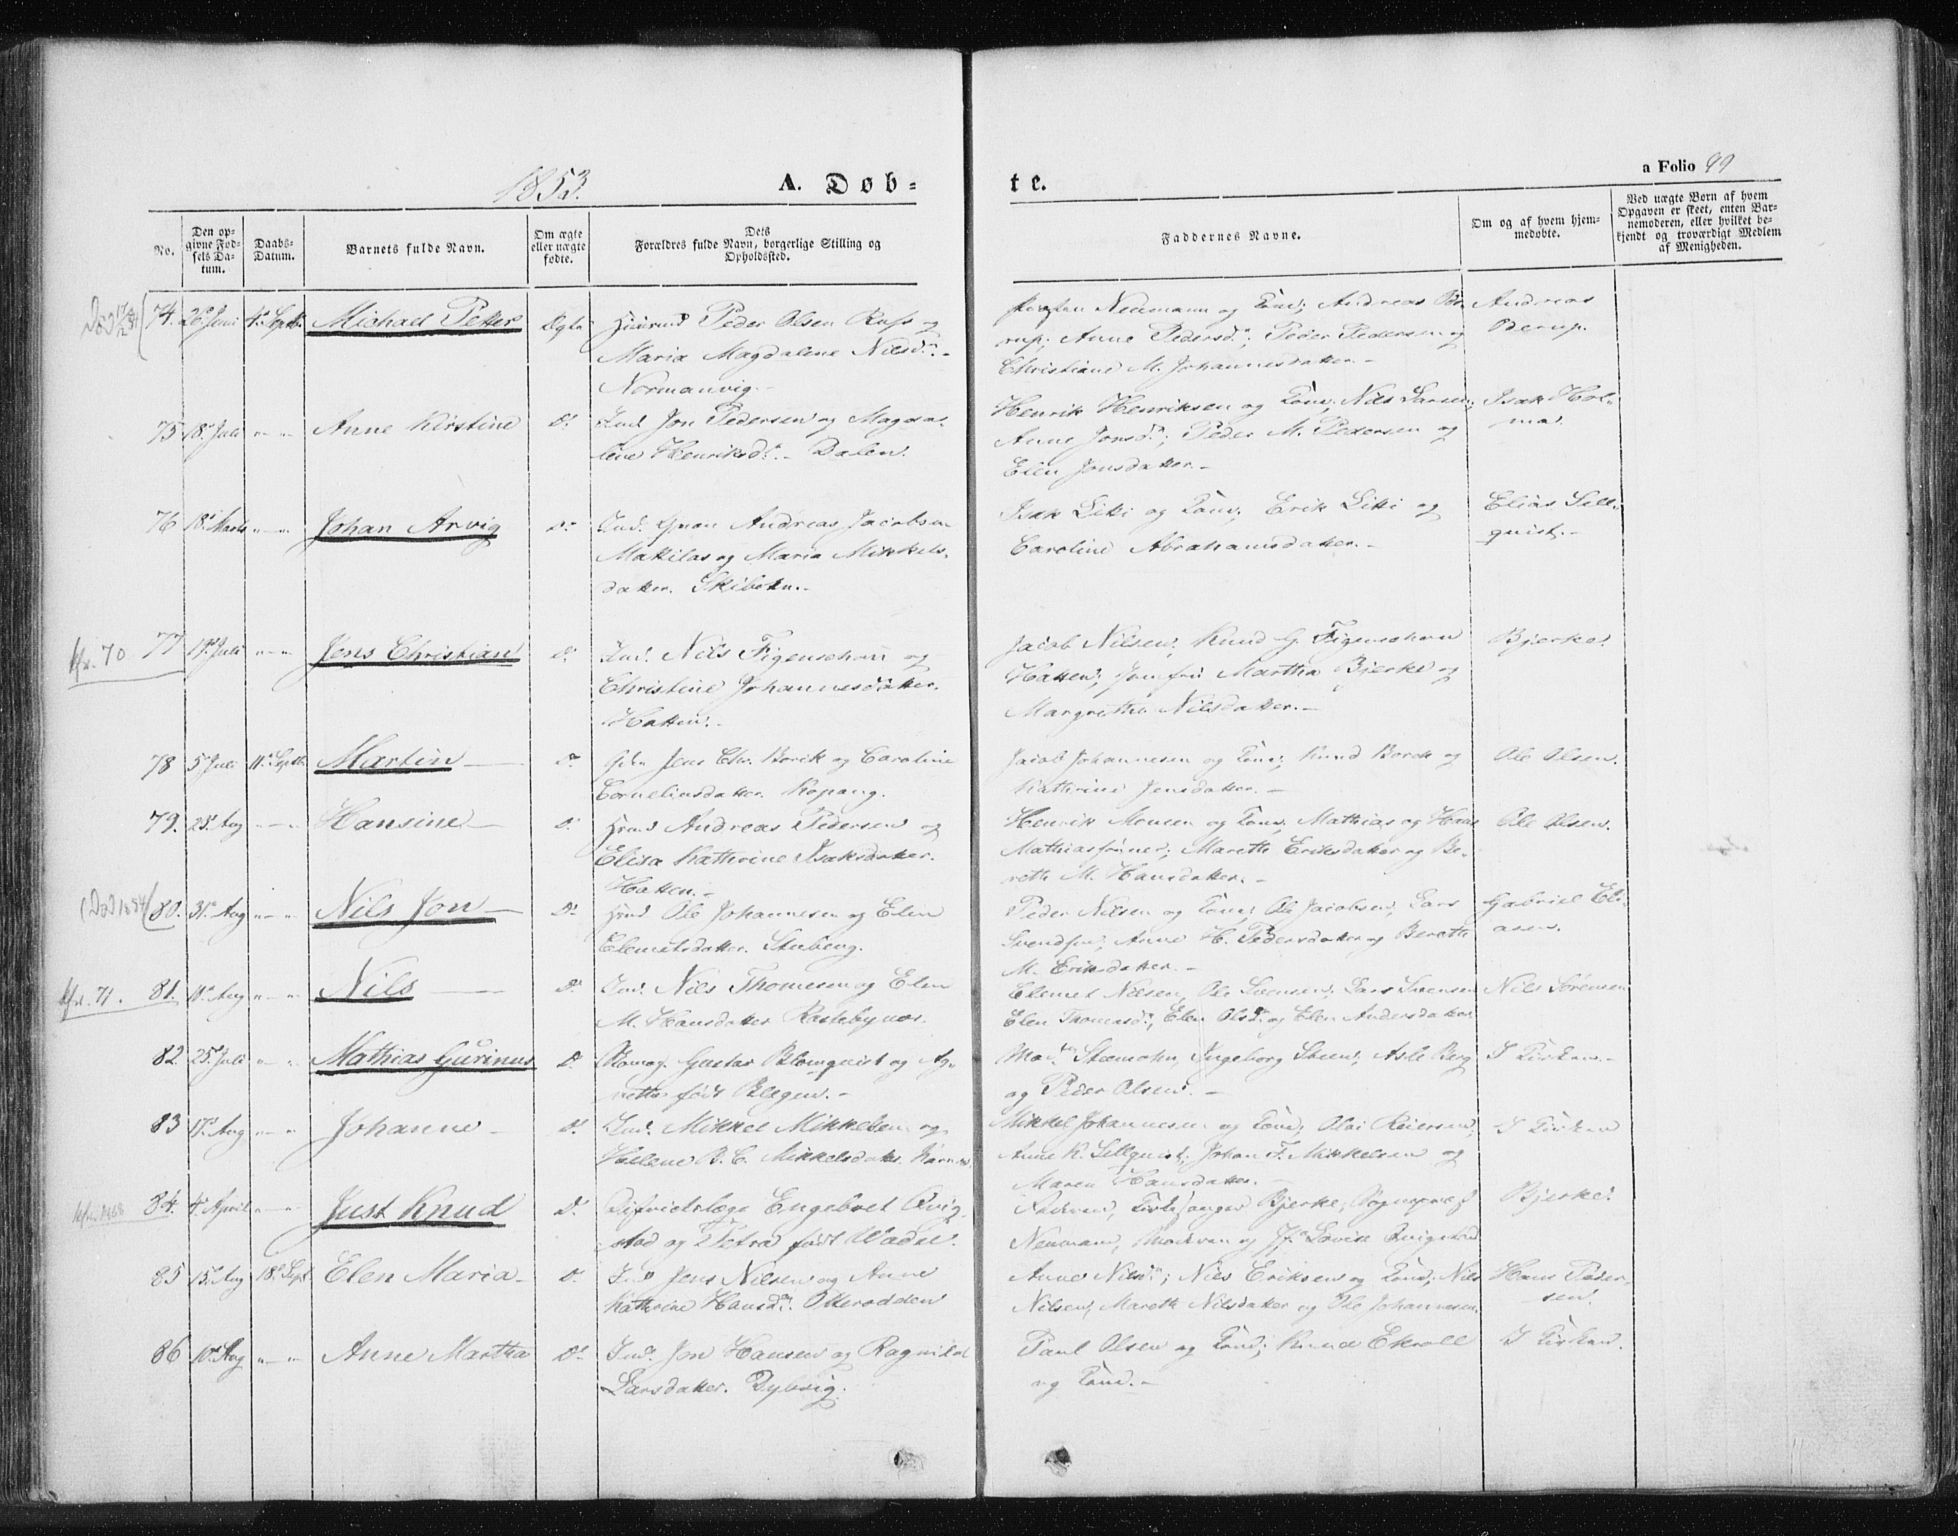 1853.
A. Døb-
te.
a Folio 99
No.
Den op-
givne Fød-
sels Da-
tum.
Daabs-
Datum.
Barnets fulde Navn.
Om ægte
eller uægte
fødte.
Dets
Forældres fulde Navn, borgerlige Stilling og
Opholdssted.
Faddernes Navne.
Om og af hvem hjem-
medøbte.
Ved uægte Børn af hvem
Opgaven er skeet, enten Bar-
nemoderen, eller hvilket be-
kjendt og troværdigt Medlem
af Menigheden.
74. 26 Juni 4 Septbr Michael Petter Ægte Peder Olsen Rass og
Maria Magdalene Nilsd.
Normanvig.
Neumann og Kone; Andreas Be-
rup; Anne Pedersd.; Peder Pedersen og
Christiane M. Johannesdatter.
Andreas
Berup.
75 18 Juli Anne Kirstine D. Ind. Jon Pedersen og Magda-
lene Henriksd. Dalen.
Henrik Henriksen og Kone; Nils Larsen;
Anne Jonsd.; Peder M. Pedersen og
Elen Jonsdatter.
Isak Hol-
ma.
76 18 Marts Johan Arvig D. Ind. Andreas Jacobsen
Mattilas og Maria Mikkels-
datter. Skibotn.
Isak Litti og Kone; Erik Litti og
Caroline Abrahamsdatter.
Elias Sell-
quist.
Nr. 70
77 19 Juli Jens Christian D. Ind. Nils Figenschou og
Christine Johannesdatter.
Hatten.
Jacob Nilsen; Knud G. Figenschou
Hatten; Jomfru Martha Bjerke og
Margrethe Nilsdatter.
Bjerke.
78 5 Juli 11 Septbr Martin D. Jens Chr. Borck og Caroline
Corneliusdatter. Kopang.
Jacob Johannesen og Kone; Knud Borck og
Kathrine Jensdatter.
Ole Olsen.
79. 28 Aug Hansine D. Andreas Pedersen og
Elisa Kathrine Isaksdatter.
Hatten.
Henrik Monsen og Kone; Mathias og Hans
Mathiassønner; Marethe Eriksdatter og Be-
rethe M. Hansdatter.
Ole Olsen.
(Død 1854
80. 31 Aug Nils Jon D. Ole Johannesen og Elen
Elemetsdatter. Stubeng.
Peder Nilsen og Kone; Ole Jacobsen; Lars
Svendsen; Anne H. Pedersdatter og Berethe
M. Eriksdatter.
Gabriel Eli-
asen.
Nr. 71.
81. 10 Aug Nils D. Ind. Nils Thomesen og Elen
M. Hansdatter Rastebynes.
Elemet Nilsen, Ole Svensen; Lars Svensen
Elen Thomasd., Elen Olsd. og Elen Andersdatter
Nils Sørensen
82. 25 Juli Mathias Gurinus D. Gustav Blomquist og Ag-
nette født Blegen.
Mad. Steensohn, Ingeborg Steen; Asle Berg
og Peder Olsen.
I Kirken.
83 17 Aug Johanne D. Ind. Mikkel Mikkelsen og
Helene B. C. Mikkelsdatter.
Mikkel Johannesen og Kone; Olai Reiersen;
Anne K. Sellquist; Johan F. Mikkelsen og
Maren Hansdatter.
I Kirken
84. 4 April Just Knud D. Districtslæge Engebret Qvig-
stad og Petra født Wadel.
Kirkesanger Bjerke, Sognepræst
Neumann, og Lovise Quigstad
Bjerke.
85 15 Aug 18 Sept. Elen Maria D. Ind. Jens Nilsen og Anne
Kathrine Hansd. Otterodden
Anne Nilsd.; Nils Eriksen og Kone; Nils
Nilsen; Marethe Nilsdatter og Ole Johannesen.
Hans Peder-
sen.
86 10 Aug Anne Martha D. Ind. Jon Hansen og Ragnild
Larsdatter. Dybvig.
Paul Olsen og Kone; Knud Ekroll
og Kone.
I Kirken.